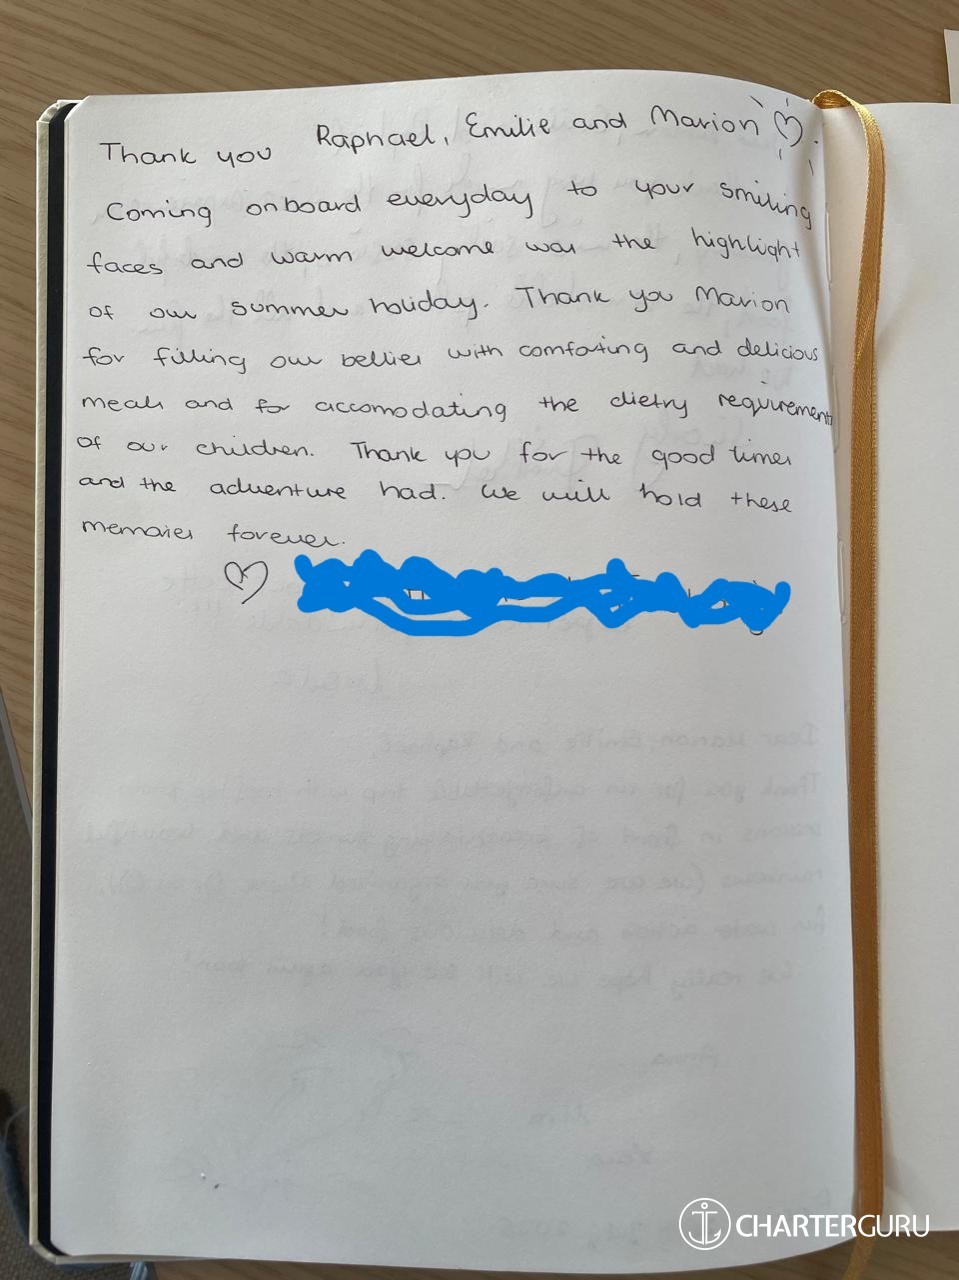 Thank you Raphael, Emilie and Marion ♡.
Coming onboard everyday to your smiling
faces and warm welcome was the highlight
of our summer holiday. Thank you Marion
for filling our bellies with comforting and delicious
meals and for accomodating the dietry requirements
of our children. Thank you for the good times
and the adventure had. We will hold these
memories forever.
♡
CHARTERGURU